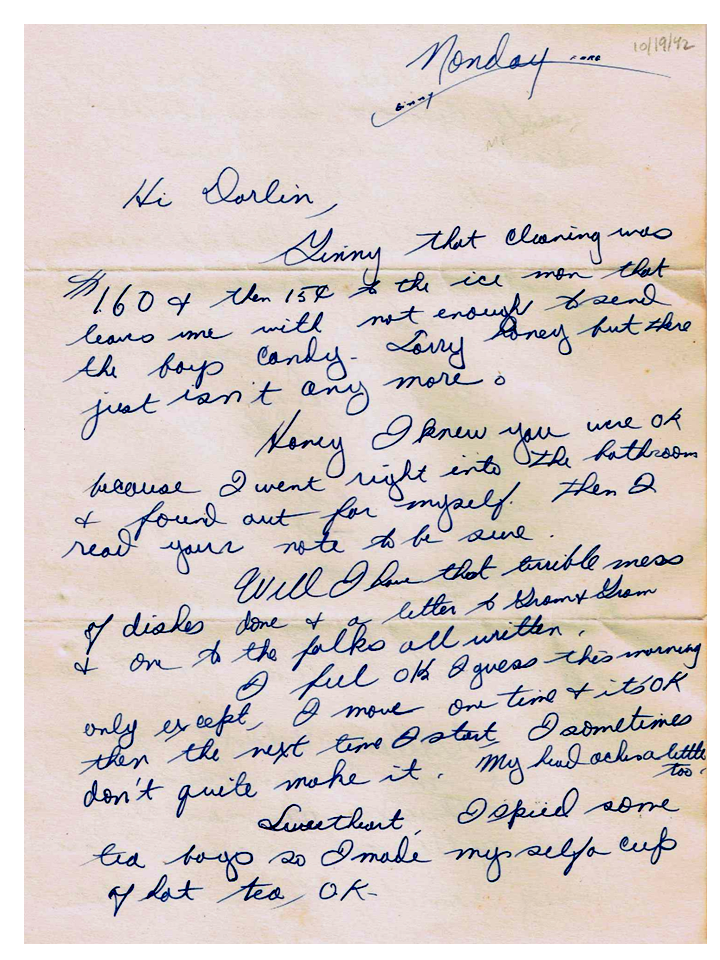 10/19/42
Monday
Ginny
Hi Darlin,
Ginny that cleaning was
$1.60 & then 15¢ to the ice man that
leavs me with not enough to send
the boys candy. Sorry honey but there
just isn't any more.
Honey I knew you were OK
because I went right into the bathroom
& found out for myself. then I
read your note to be sure.
Well I have that terrible mess
of dishes done & a letter to Gram & Gram
& one to the folks all written.
I feel OK I guess this morning
only except, I move one time & its OK
then the next time I start I sometimes
don't quite make it. My head aches a little
too.
Sweetheart, I spied some
tea bags so I made myself a cup
of hot tea, OK-